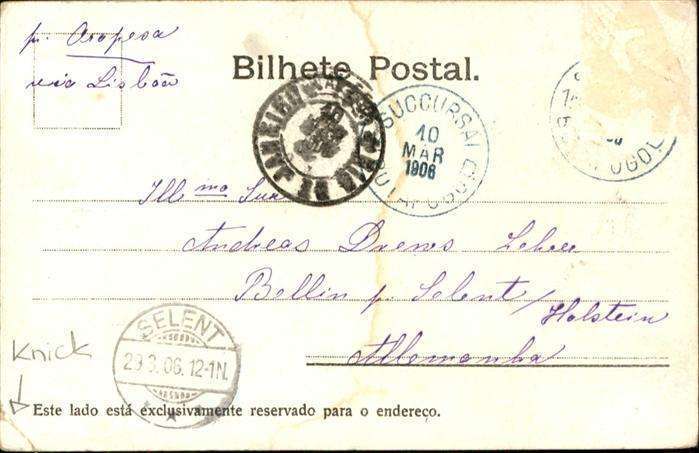 p. Oropesa
via Lisbôa
Bilhete Postal.
RIO DE JANEIRO
SUCCURSAL
10
MAR
1906
BOTAFOGO
BOTAFOGO
Ill mo Snr
Andreas Drews
Bellin p. Selent/
Holstein
Allemanha
SELENT
29.3.06.12-1N.
Knick
Este lado está exclusivamente reservado para o endereço.